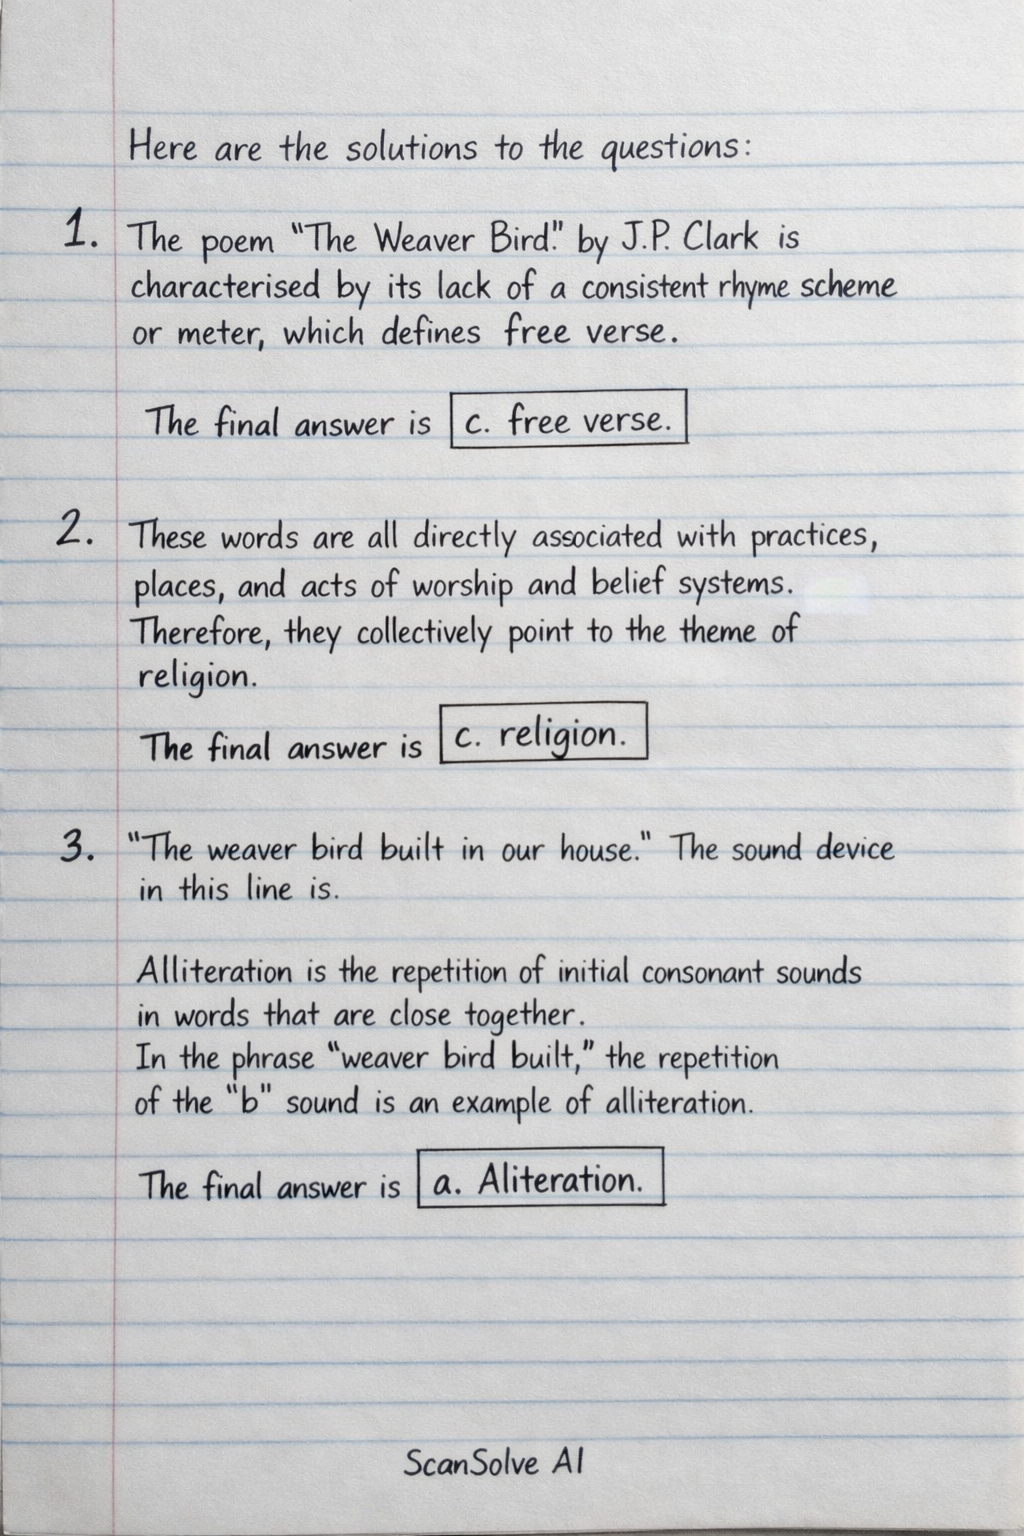 Here are the solutions to the questions:
1. The poem "The Weaver Bird." by J.P. Clark is
characterised by its lack of a consistent rhyme scheme
or meter, which defines free verse.
The final answer is c. free verse.
2. These words are all directly associated with practices,
places, and acts of worship and belief systems.
Therefore, they collectively point to the theme of
religion.
The final answer is c. religion.
3. "The weaver bird built in our house." The sound device
in this line is.
Alliteration is the repetition of initial consonant sounds
in words that are close together.
In the phrase "weaver bird built," the repetition
of the "b" sound is an example of alliteration.
The final answer is a. Aliteration.
ScanSolve AI